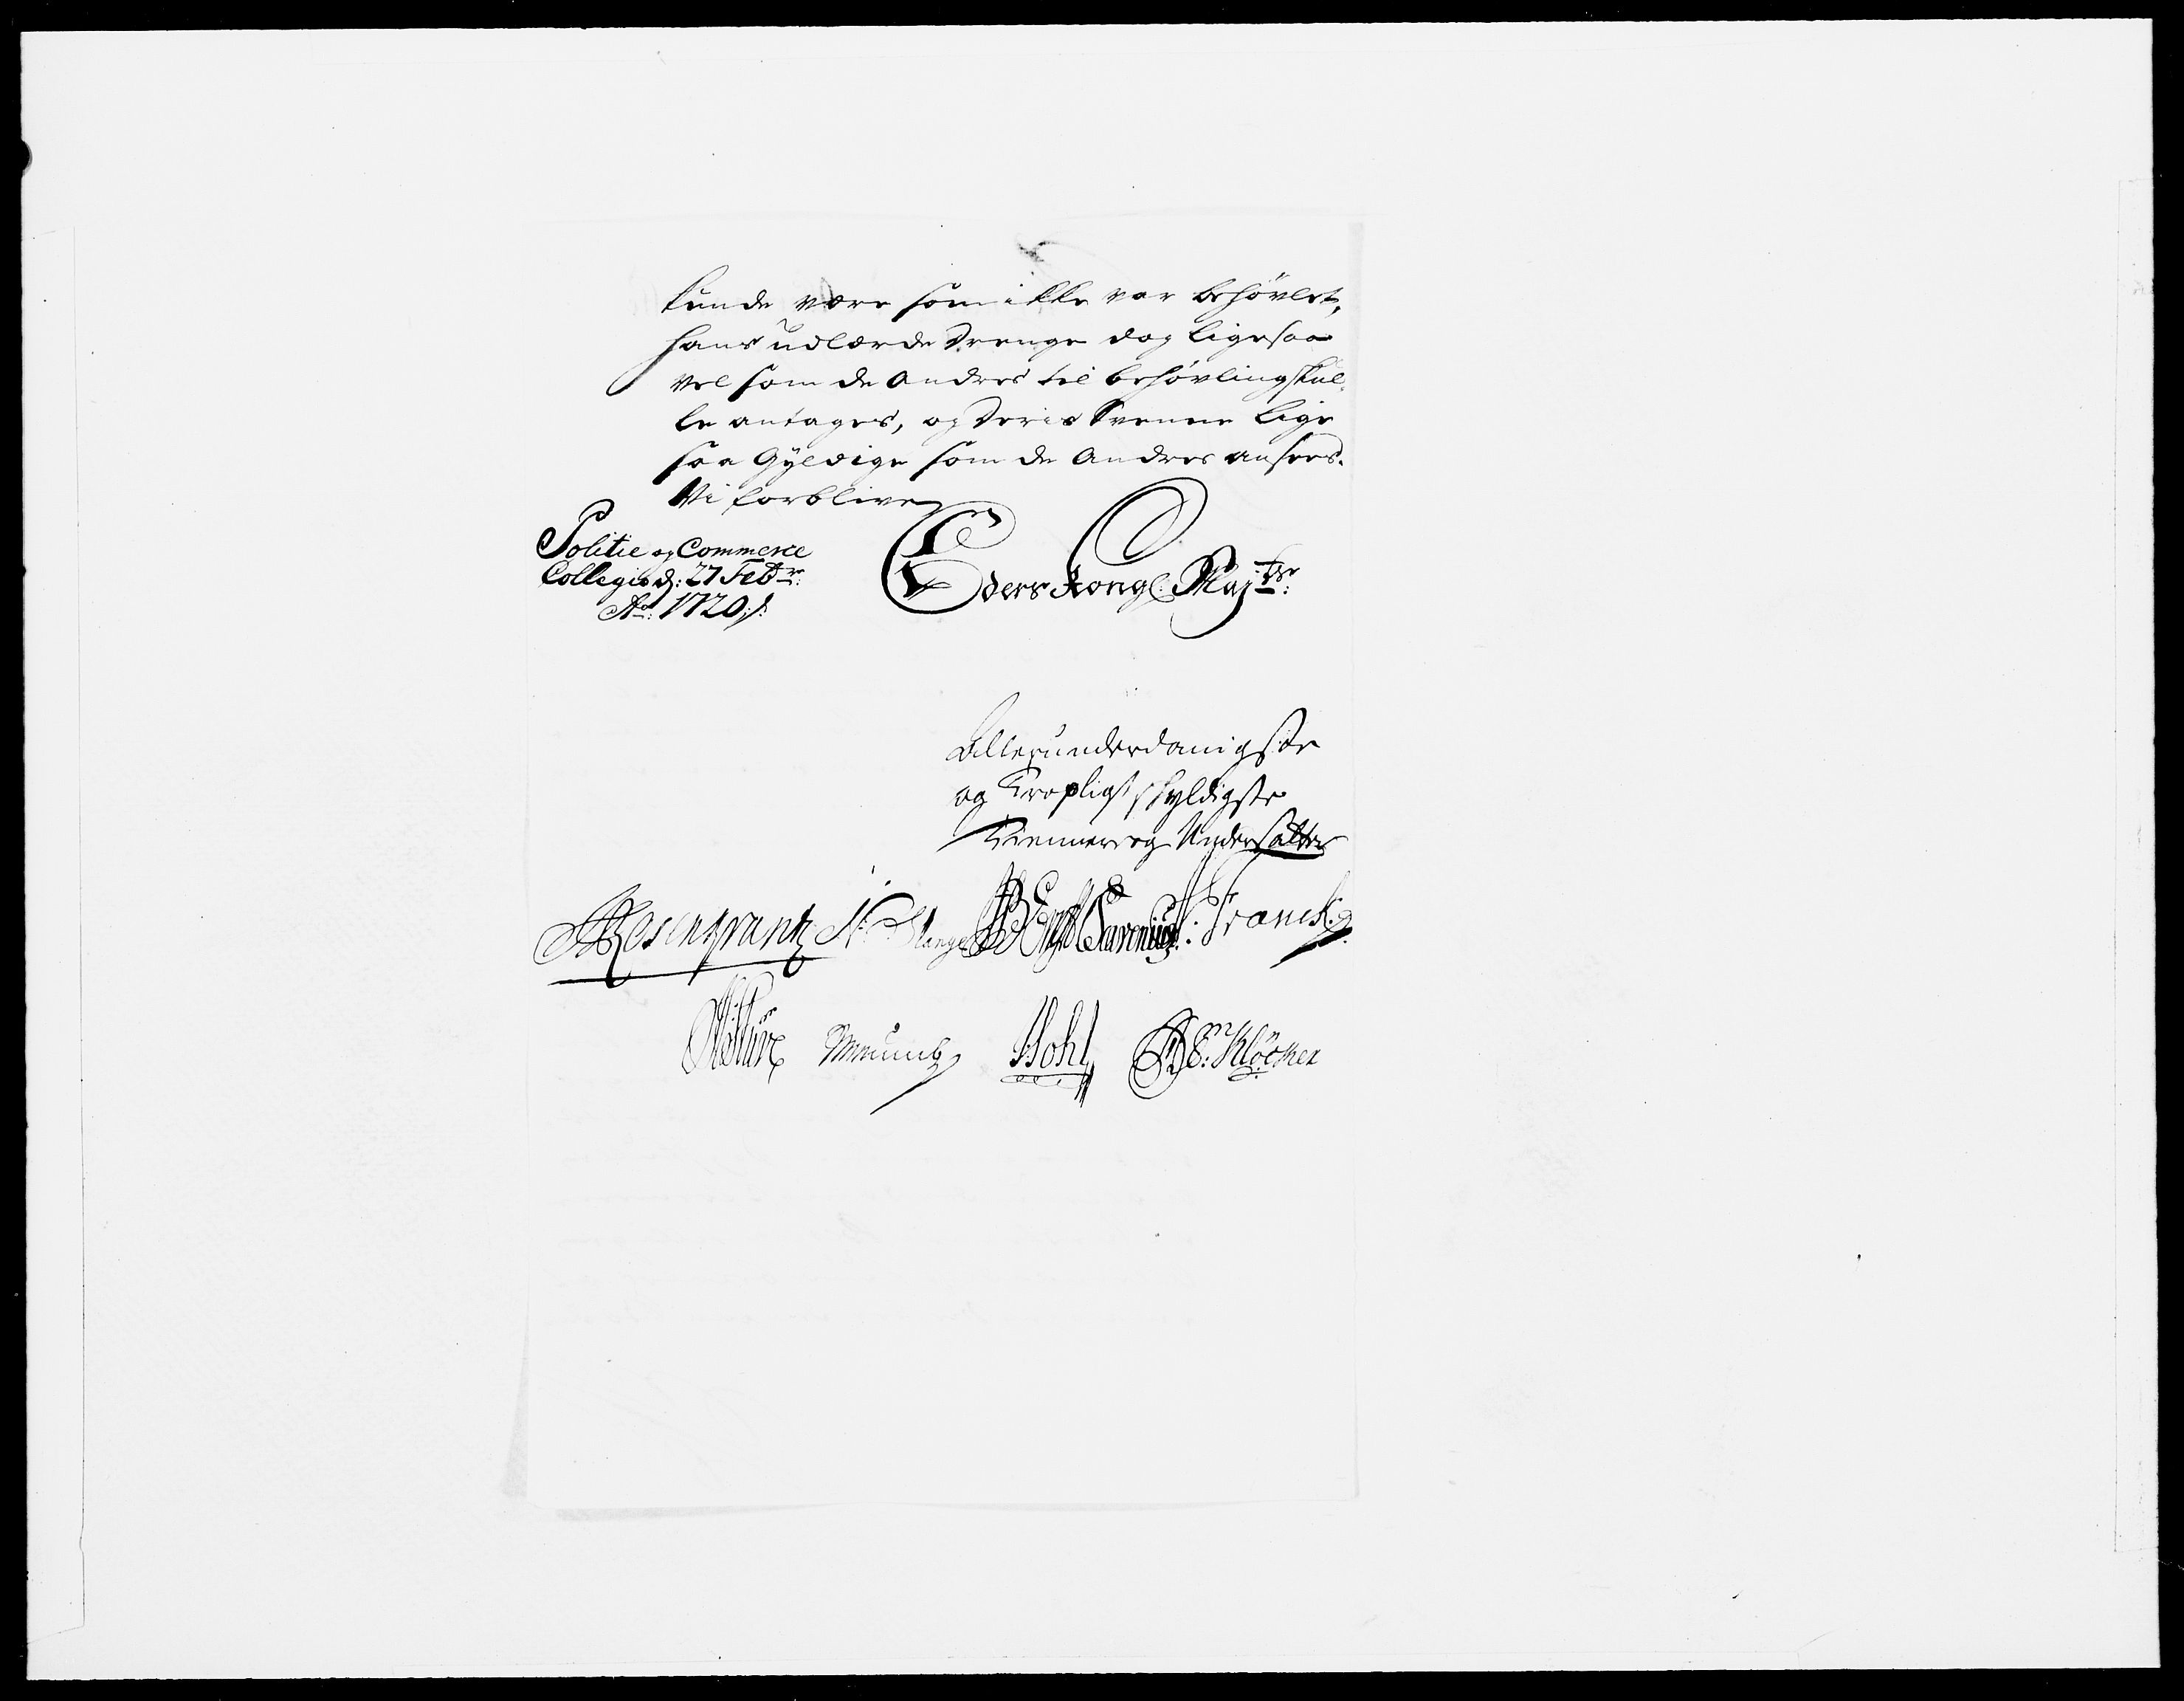 kunde være som ikke var behövlet,
hans udlærde Drenge dog ligesaa
vel som de Andres til behövling skul-
le antages, og deris Svenne lige
saa Gyldige som de Andres ansees.
Vi forblive
Politie og Commerce
Collegio d: 27 Febr:
Ao: 1720 ./.
Eders Kongl: Majts:
Allerunderdanigste
og Tropligtskyldigste
Tienner og Undersatter
Rosenkrantz N: Slange Severin Franck
Munch Hohl E: Klöcker